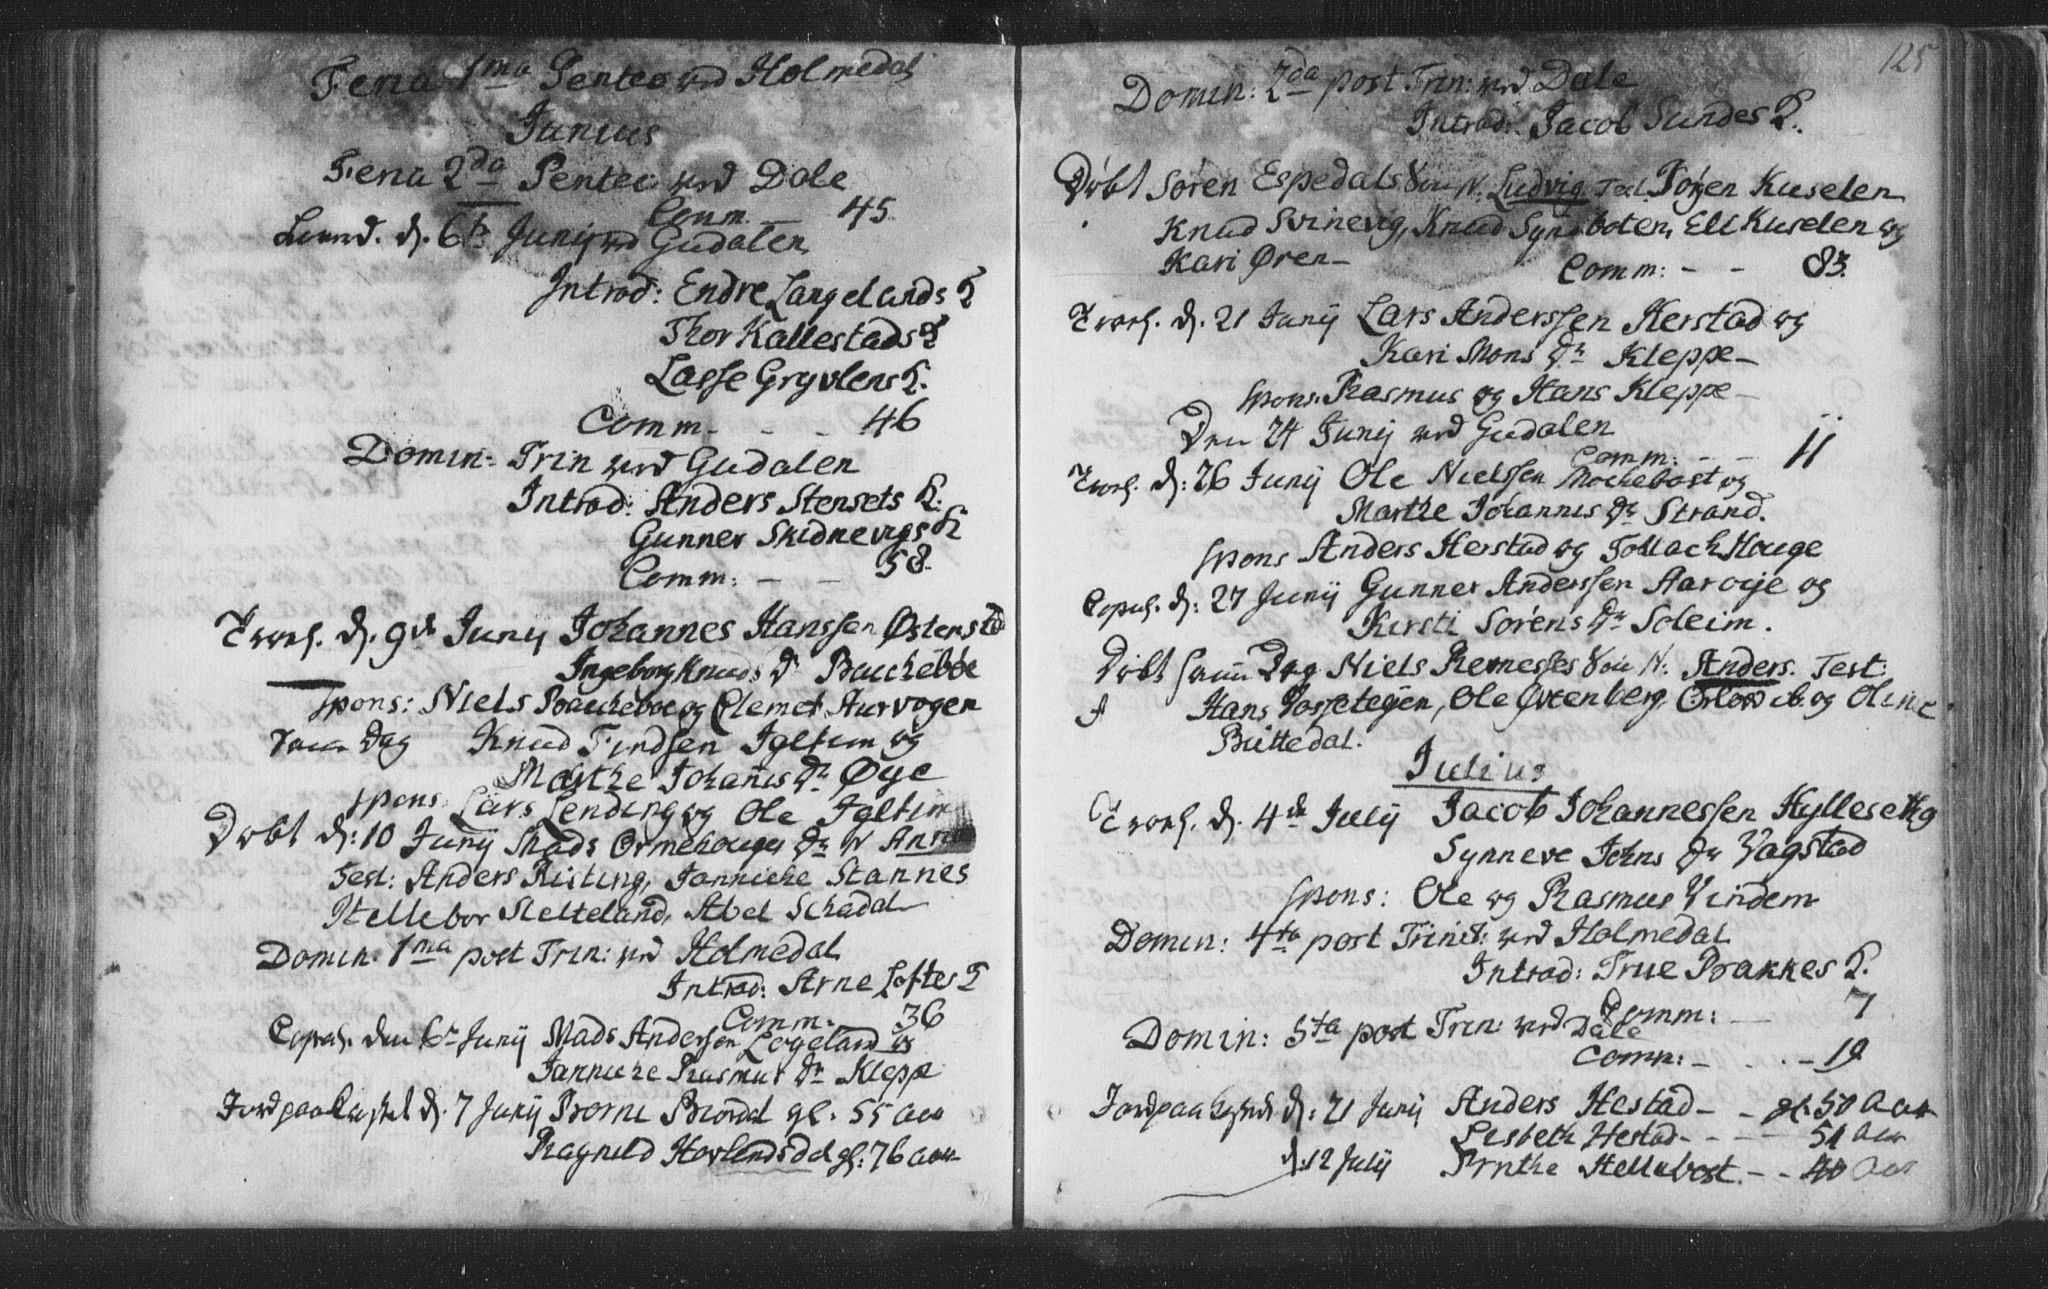 Feria 1ma Pentec ved Holmedal
Junius
Feria 2da Pentec: ved Dale
Comm. — 45
d. 6te Junij ved Gudalen
Introd: Endre Langelands K
Thor Kallestads K
Lasse Gryvlens K.
Comm - - - 46
Domin: Trin ved Gudalen
Introd: Anders Stensets K.
Gunner Skidnevigs K
Comm: — — 58.
Trool. d. 9de Junij Johannes Hanssen Østenstad
Ingeborg Knuds D Bacheboe
Spons: Niels Baacheboe og Clemet Aurvogen
Dag Knud Findsen Igltun og
Marthe Johannis Dr Øye
Spons: Lars Lending og Ole Igltun
Døbt d: 10 Junij Mads Ormehouges Dr N Anna
Test: Anders Risting, Jannicke Stannes
Hellebor Slelteland, Abel Schadal
Domin. 1ma post Trin: ved Holmedal
Introd: Arne Loftes K
Comm. 36
Copul. den 6te Junij Mads Andersen Logeland og
Jannicke Rasmus Dr Kleppe
Jordpaakastet d. 7 Junij Børni gl. 55 Aar
Ragnild Hovlendsdal gl: 76 aar
125
Domin: 2da post Trin: ved Dale
Introd: Jacob Sundes K.
Døbt Søren Espedals Søn N. Ludvig Test. Torgen Kuselen
Knud Svinevig, Knud Synsboten, Eli Kuselen og
Kari Øren
Comm: - - 83.
Trool. d. 21 Junij Lars Anderssen Herstad og
Kari Mons Dr Kleppe
Spons. Rasmus og Hans Kleppe
Den 24 Junij ved Gudalen
Comm: - - 11
Trool. d: 26 Junij Ole Nielssen Mochebost og
Marthe Johannis Dr Strand.
Spons Anders Herstad og Tollach Houge
Copul. d: 27 Junij Gunner Anderssen Aarøije og
Kirsti Sørens Dr Soleim.
Døbt samme Dag Niels Remesses Søn N: Anders. Test:
Hans Ole Øvrenberg, og Oline
Bittedal.
Julius
Trool. d. 4de Julij Jacob Johannessen Hylleset og
Synneve Johns Dr Vagstad
Spons: Ole og Rasmus Vindem
Domin: 4ta post Trinit: ved Holmedal
Introd: True Bakkes K.
Comm: — 7
Domin: 5ta post Trin: ved Dale
Comm: - - - 19
Jordpaakastet d: 21 Junij Anders Hestad - - gl. 50 Aar
Lisbeth Hestad - - - 51 Aar
d: 12 Julij Brithe Hellebost - - 40 Aar